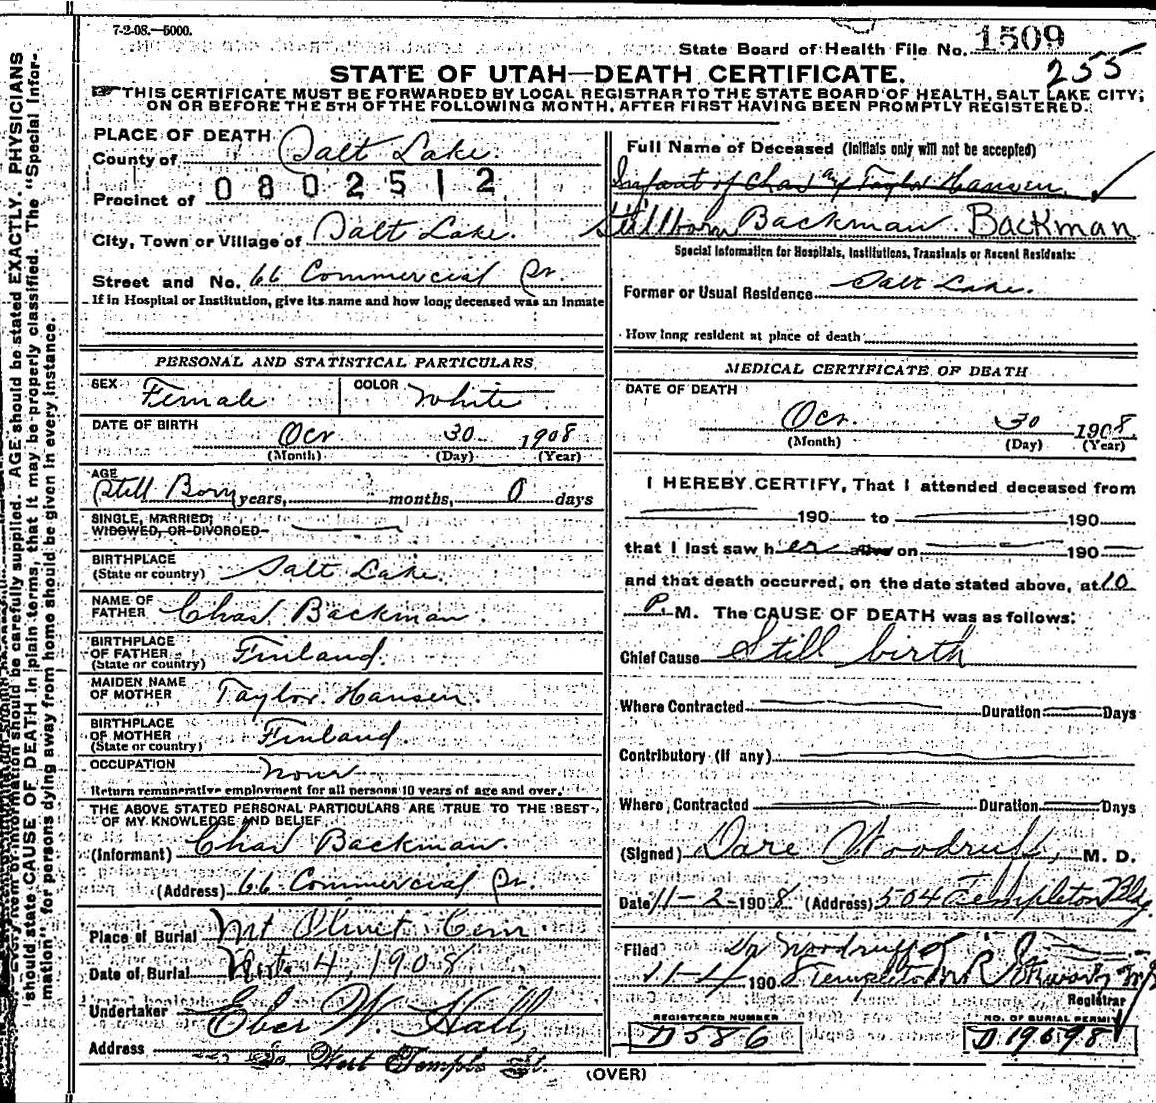 7-2-08.—5000.
State Board of Health File No. 1509
255
STATE OF UTAH—DEATH CERTIFICATE.
THIS CERTIFICATE MUST BE FORWARDED BY LOCAL REGISTRAR TO THE STATE BOARD OF HEALTH, SALT LAKE CITY,
ON OR BEFORE THE 5TH OF THE FOLLOWING MONTH, AFTER FIRST HAVING BEEN PROMPTLY REGISTERED.
PLACE OF DEATH
County of Salt Lake.
0802512
Precinct of
City, Town or Village of Salt Lake.
Street and No. 66 Commercial
If in Hospital or Institution, give its name and how long deceased was an inmate
PERSONAL AND STATISTICAL PARTICULARS
SEX Female COLOR White
DATE OF BIRTH Oct 30 1908
(Month) (Day) (Year)
AGE
Still Born years, months, 0 days
SINGLE, MARRIED,
WIDOWED, OR DIVORCED
BIRTHPLACE
(State or country) Salt Lake.
NAME OF
FATHER Chas Backman.
BIRTHPLACE
OF FATHER
(State or country) Finland.
MAIDEN NAME
OF MOTHER Taylor Hansen.
BIRTHPLACE
OF MOTHER
(State or country) Finland
OCCUPATION None
Return remunerative employment for all persons 10 years of age and over.
THE ABOVE STATED PERSONAL PARTICULARS ARE TRUE TO THE BEST
OF MY KNOWLEDGE AND BELIEF
(Informant) Chas Backman.
(Address) 66 Commercial
Place of Burial Mt Olivet Cem.
Date of Burial Nov. 4, 1908
Undertaker Eber W. Hall,
Address West Temple St.
Full Name of Deceased (Initials only will not be accepted)
Infant of Chas Taylor Hansen.
Stillborn Backman. Backman
Special Information for Hospitals, Institutions, Transients or Recent Residents:
Former or Usual Residence Salt Lake.
How long resident at place of death
MEDICAL CERTIFICATE OF DEATH
DATE OF DEATH
Oct. 30 1908
(Month) (Day) (Year)
I HEREBY CERTIFY, That I attended deceased from
190 to 190
that I last saw her alive on 190
and that death occurred, on the date stated above, at 10
P. M. The CAUSE OF DEATH was as follows:
Chief Cause Still birth
Where Contracted Duration Days
Contributory (if any)
Where Contracted Duration Days
(Signed) Woodruff, M. D.
Date 11-2-1908. (Address) 504 Templeton Bldg.
Filed Dr Woodruff
11-4 1908 Templeton
Registrar
REGISTERED NUMBER
D586
NO. OF BURIAL PERMIT
D19698
(OVER)
should state CAUSE OF DEATH in plain terms, that it may be properly classified. The "Special Infor-
mation" for persons dying away from home should be given in every instance.
Every item of information should be carefully supplied. AGE should be stated EXACTLY. PHYSICIANS